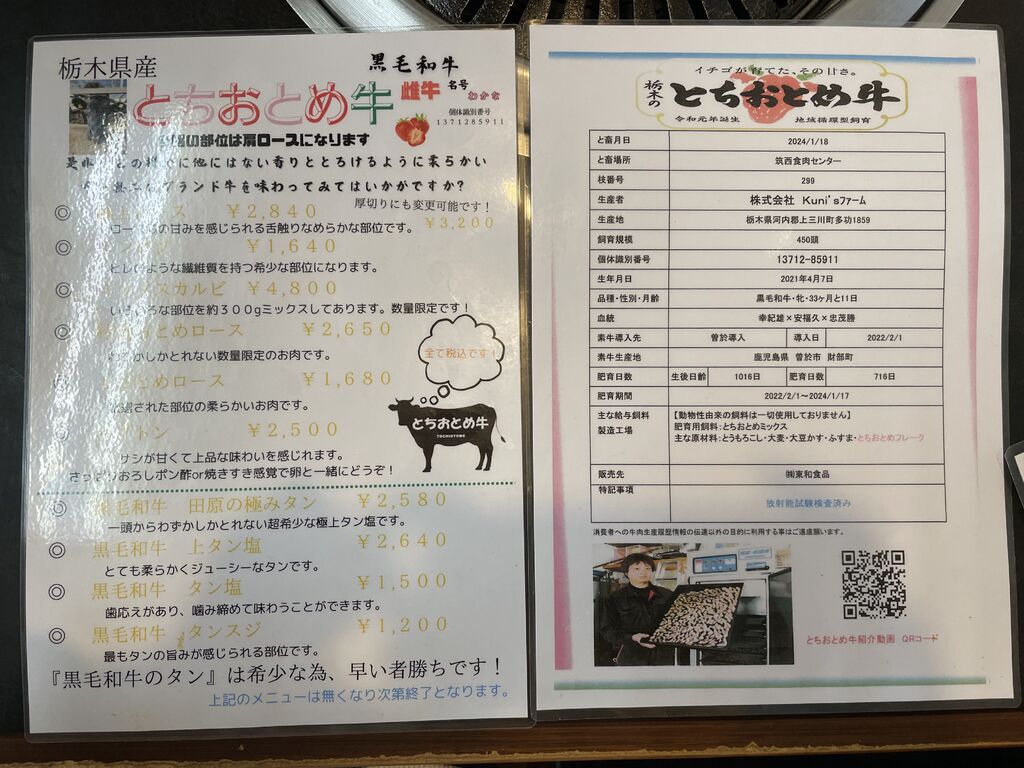 栃木県産
黒毛和牛
とちおとめ牛
雌牛
名号
わかな
個体識別番号
1371285911
の部位は肩ロースになります
他にはない香りととろけるように柔らかい
ブランド牛を味わってみてはいかがですか?
◎ ¥2,840
厚切りにも変更可能です!
¥3,200
甘みを感じられる舌触りなめらかな部位です。
◎ ¥1,640
ヒレのような繊維質を持つ希少な部位になります。
◎ カルビ ¥4,800
いろいろな部位を約300gミックスしてあります。数量限定です!
◎ とめロース ¥2,650
しかとれない数量限定のお肉です。
とめロース ¥1,680
された部位の柔らかいお肉です。
トン ¥2,500
サシが甘くて上品な味わいを感じれます。
さっぱりおろしポン酢or焼きすき感覚で卵と一緒にどうぞ!
全て税込です!
とちおとめ牛
TOCHIOTOME
◎ 黒毛和牛 田原の極みタン ¥2,580
一頭からわずかしかとれない超希少な極上タン塩です。
◎ 黒毛和牛 上タン塩 ¥2,640
とても柔らかくジューシーなタンです。
◎ 黒毛和牛 タン塩 ¥1,500
歯応えがあり、噛み締めて味わうことができます。
◎ 黒毛和牛 タンスジ ¥1,200
最もタンの旨みが感じられる部位です。
『黒毛和牛のタン』は希少な為、早い者勝ちです!
上記のメニューは無くなり次第終了となります。
イチゴが育てた、その甘さ。
栃木の とちおとめ牛
令和元年誕生 地域循環型飼育
と畜月日 2024/1/18
と畜場所 筑西食肉センター
枝番号 299
生産者 株式会社 Kuni'sファーム
生産地 栃木県河内郡上三川町多功1859
飼育規模 450頭
個体識別番号 13712-85911
生年月日 2021年4月7日
品種・性別・月齢 黒毛和牛・牝・33ヶ月と11日
血統 幸紀雄×安福久×忠茂勝
素牛導入先 曽於導入 導入日 2022/2/1
素牛生産地 鹿児島県 曽於市 財部町
肥育日数 生後日齢 1016日 肥育日数 716日
肥育期間 2022/2/1~2024/1/17
主な給与飼料 【動物性由来の飼料は一切使用しておりません】
製造工場 肥育用飼料:とちおとめミックス
主な原材料:とうもろこし・大麦・大豆かす・ふすま・とちおとめフレーク
販売先 ㈱東和食品
特記事項
放射能試験検査済み
消費者への牛肉生産履歴情報の伝達以外の目的に利用する事はご遠慮願います。
とちおとめ牛紹介動画 QRコード